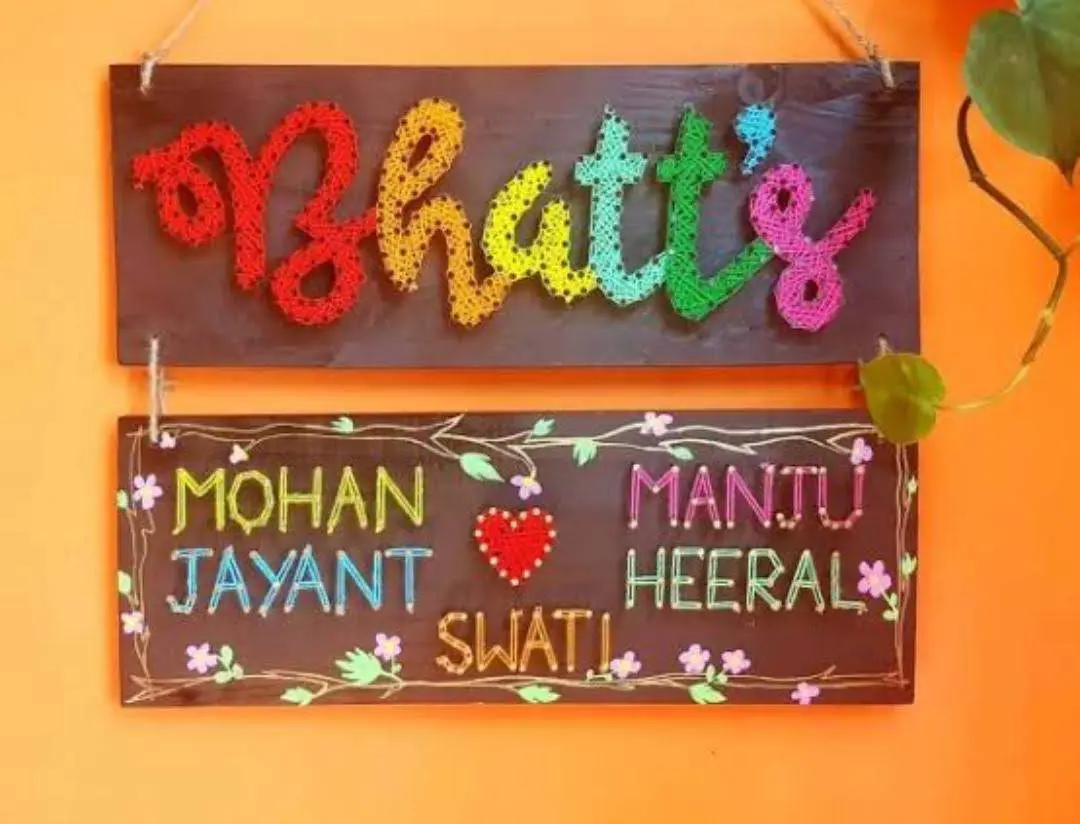 Bhatt's
MOHAN MANJU
JAYANT HEERAL
SWATI